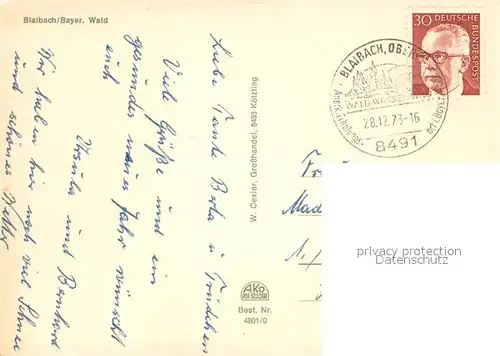 Blaibach/Bayer. Wald
Liebe Tante Berta u. Trudchen
Viele Grüße und ein
gesundes neues Jahr wünscht
euch
Ursula und Bernhard
Wir haben hier noch viel Schnee
und schönes Wetter
W. Oexler, Großhandel, 8493 Kötzting
AKO
Best. Nr.
4801/0
30 DEUTSCHE
BUNDESPOST
BLAIBACH, OBERPF
WALD WASSER
28.12.73-16
8491
privacy protection
Datenschutz